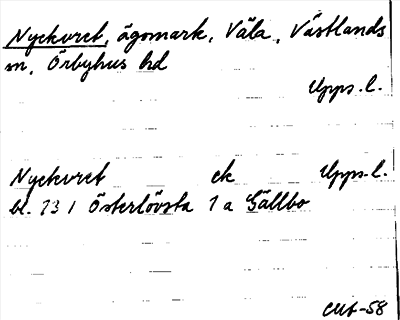 Nyckvret, ägomark, Väla, Västlands
sn, Örbyhus hd
Upps. l.
Nyckvret ek Upps. l.
bl. 731 Österlövsta 1 a Gällbo
CUt-58